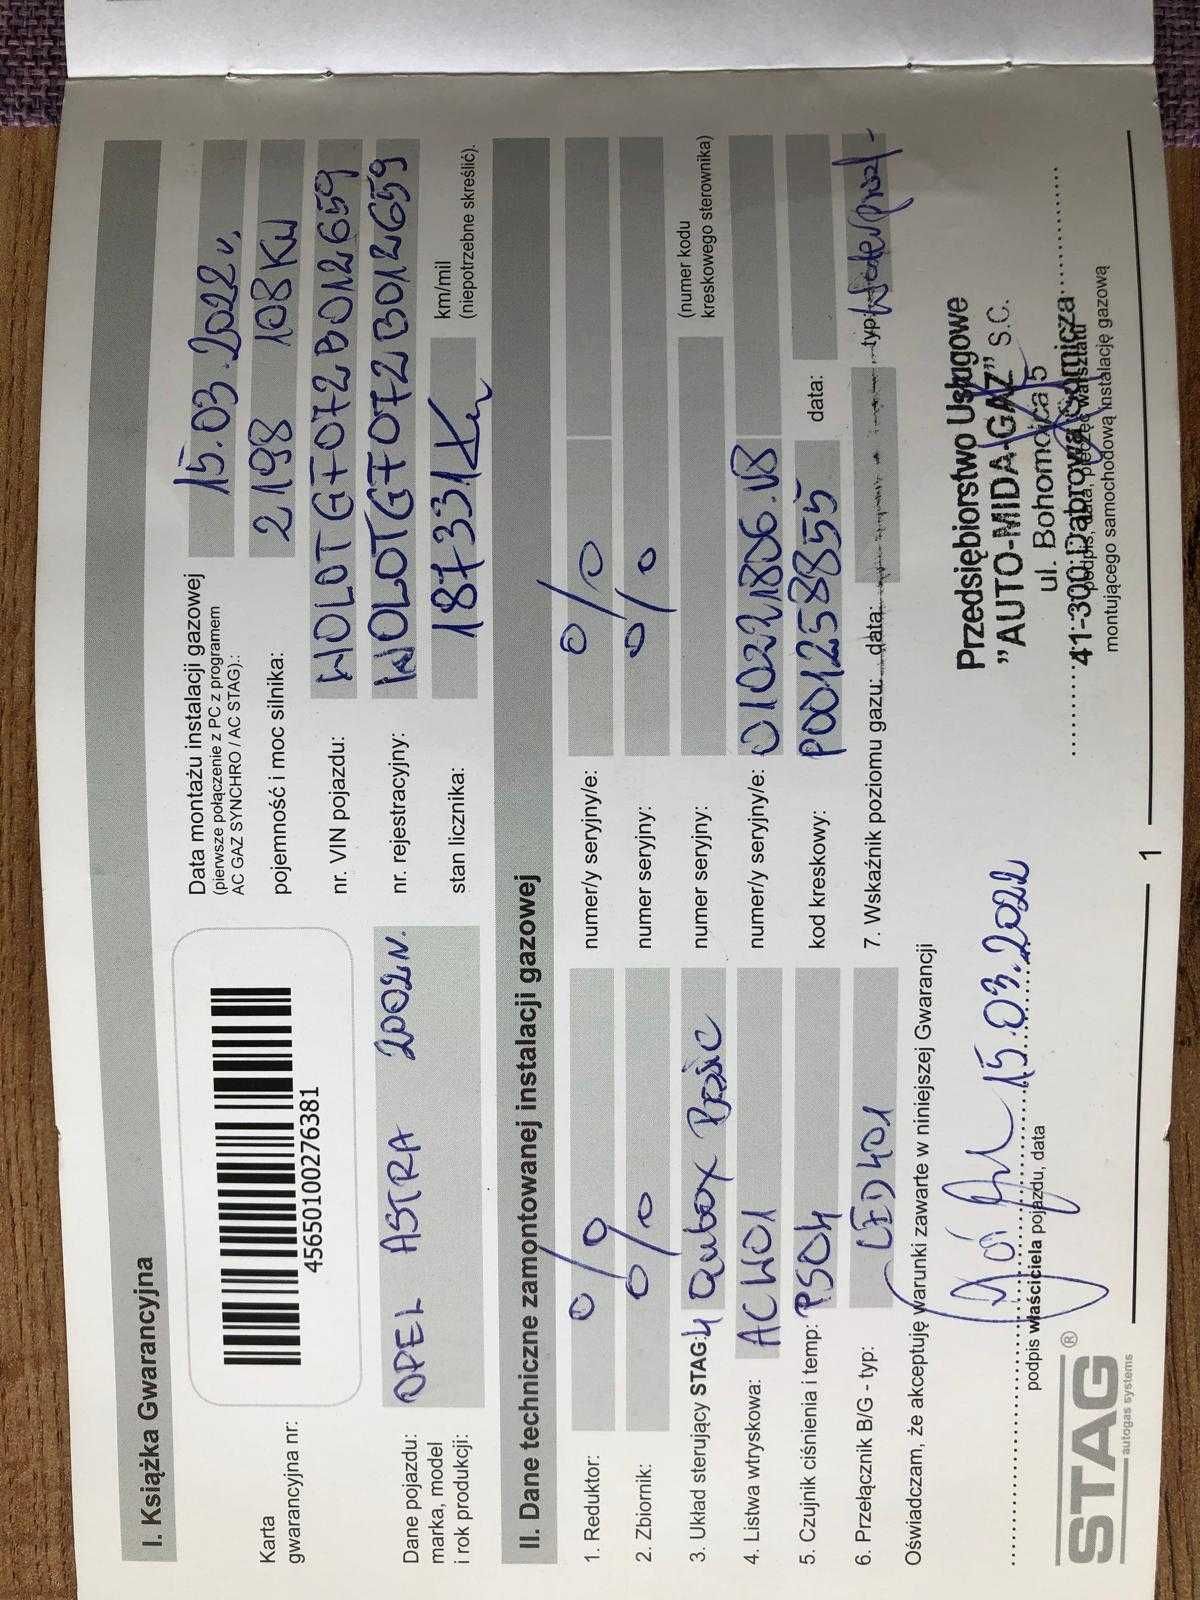 I. Książka Gwarancyjna
Karta
gwarancyjna nr:
45650100276381
Data montażu instalacji gazowej
(pierwsze połączenie z PC z programem
AC GAZ SYNCHRO / AC STAG).:
15.03.2022r.
pojemność i moc silnika:
2198 108 KW
nr. VIN pojazdu:
WOLOTGF072B012659
Dane pojazdu:
marka, model
i rok produkcji:
OPEL ASTRA 2002r.
nr. rejestracyjny:
WOLOTGF072B012659
stan licznika:
187331 Km
km/mil
(niepotrzebne skreślić).
II. Dane techniczne zamontowanej instalacji gazowej
1. Reduktor: % numer/y seryjny/e: %
2. Zbiornik: % numer seryjny: %
3. Układ sterujący STAG: 4 Qubox Basic numer seryjny:
(numer kodu
kreskowego sterownika)
4. Listwa wtryskowa: ACW01 numer/y seryjny/e: 010221806.VB
5. Czujnik ciśnienia i temp: PS04 kod kreskowy: P001258855 data:
6. Przełącznik B/G - typ: LED 401 7. Wskaźnik poziomu gazu: data: typ:
Oświadczam, że akceptuję warunki zawarte w niniejszej Gwarancji
15.03.2022
podpis właściciela pojazdu, data
Przedsiębiorstwo Usługowe
"AUTO-MIDA-GAZ" S.C.
ul. Bohomojca 5
41-300 Dąbrowa Górnicza
podpis, data, pieczęć warsztatu
montującego samochodową instalację gazową
STAG®
autogas systems
1